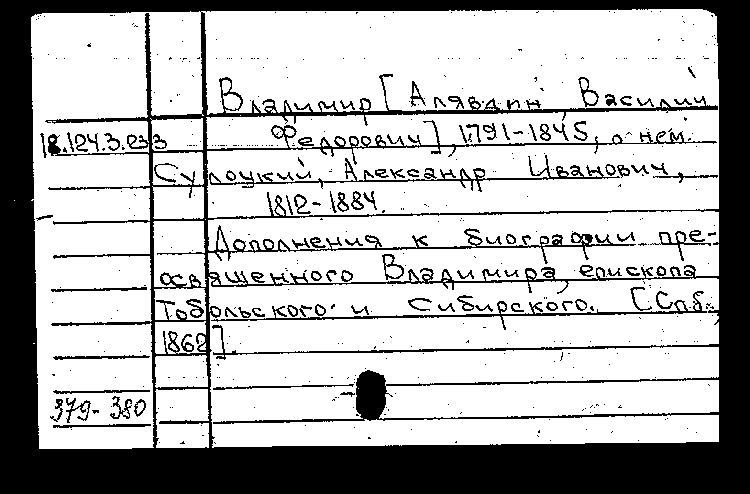 Владимир [Алявдин, Василий
18.124.3.233 Федорович], 1791-1845, о нем.
Сулоцкий, Александр Иванович,
1812-1884.
Дополнения к биографии пре-
освященного Владимира, епископа
Тобольского и Сибирского. [Спб.,
1862].
379-380